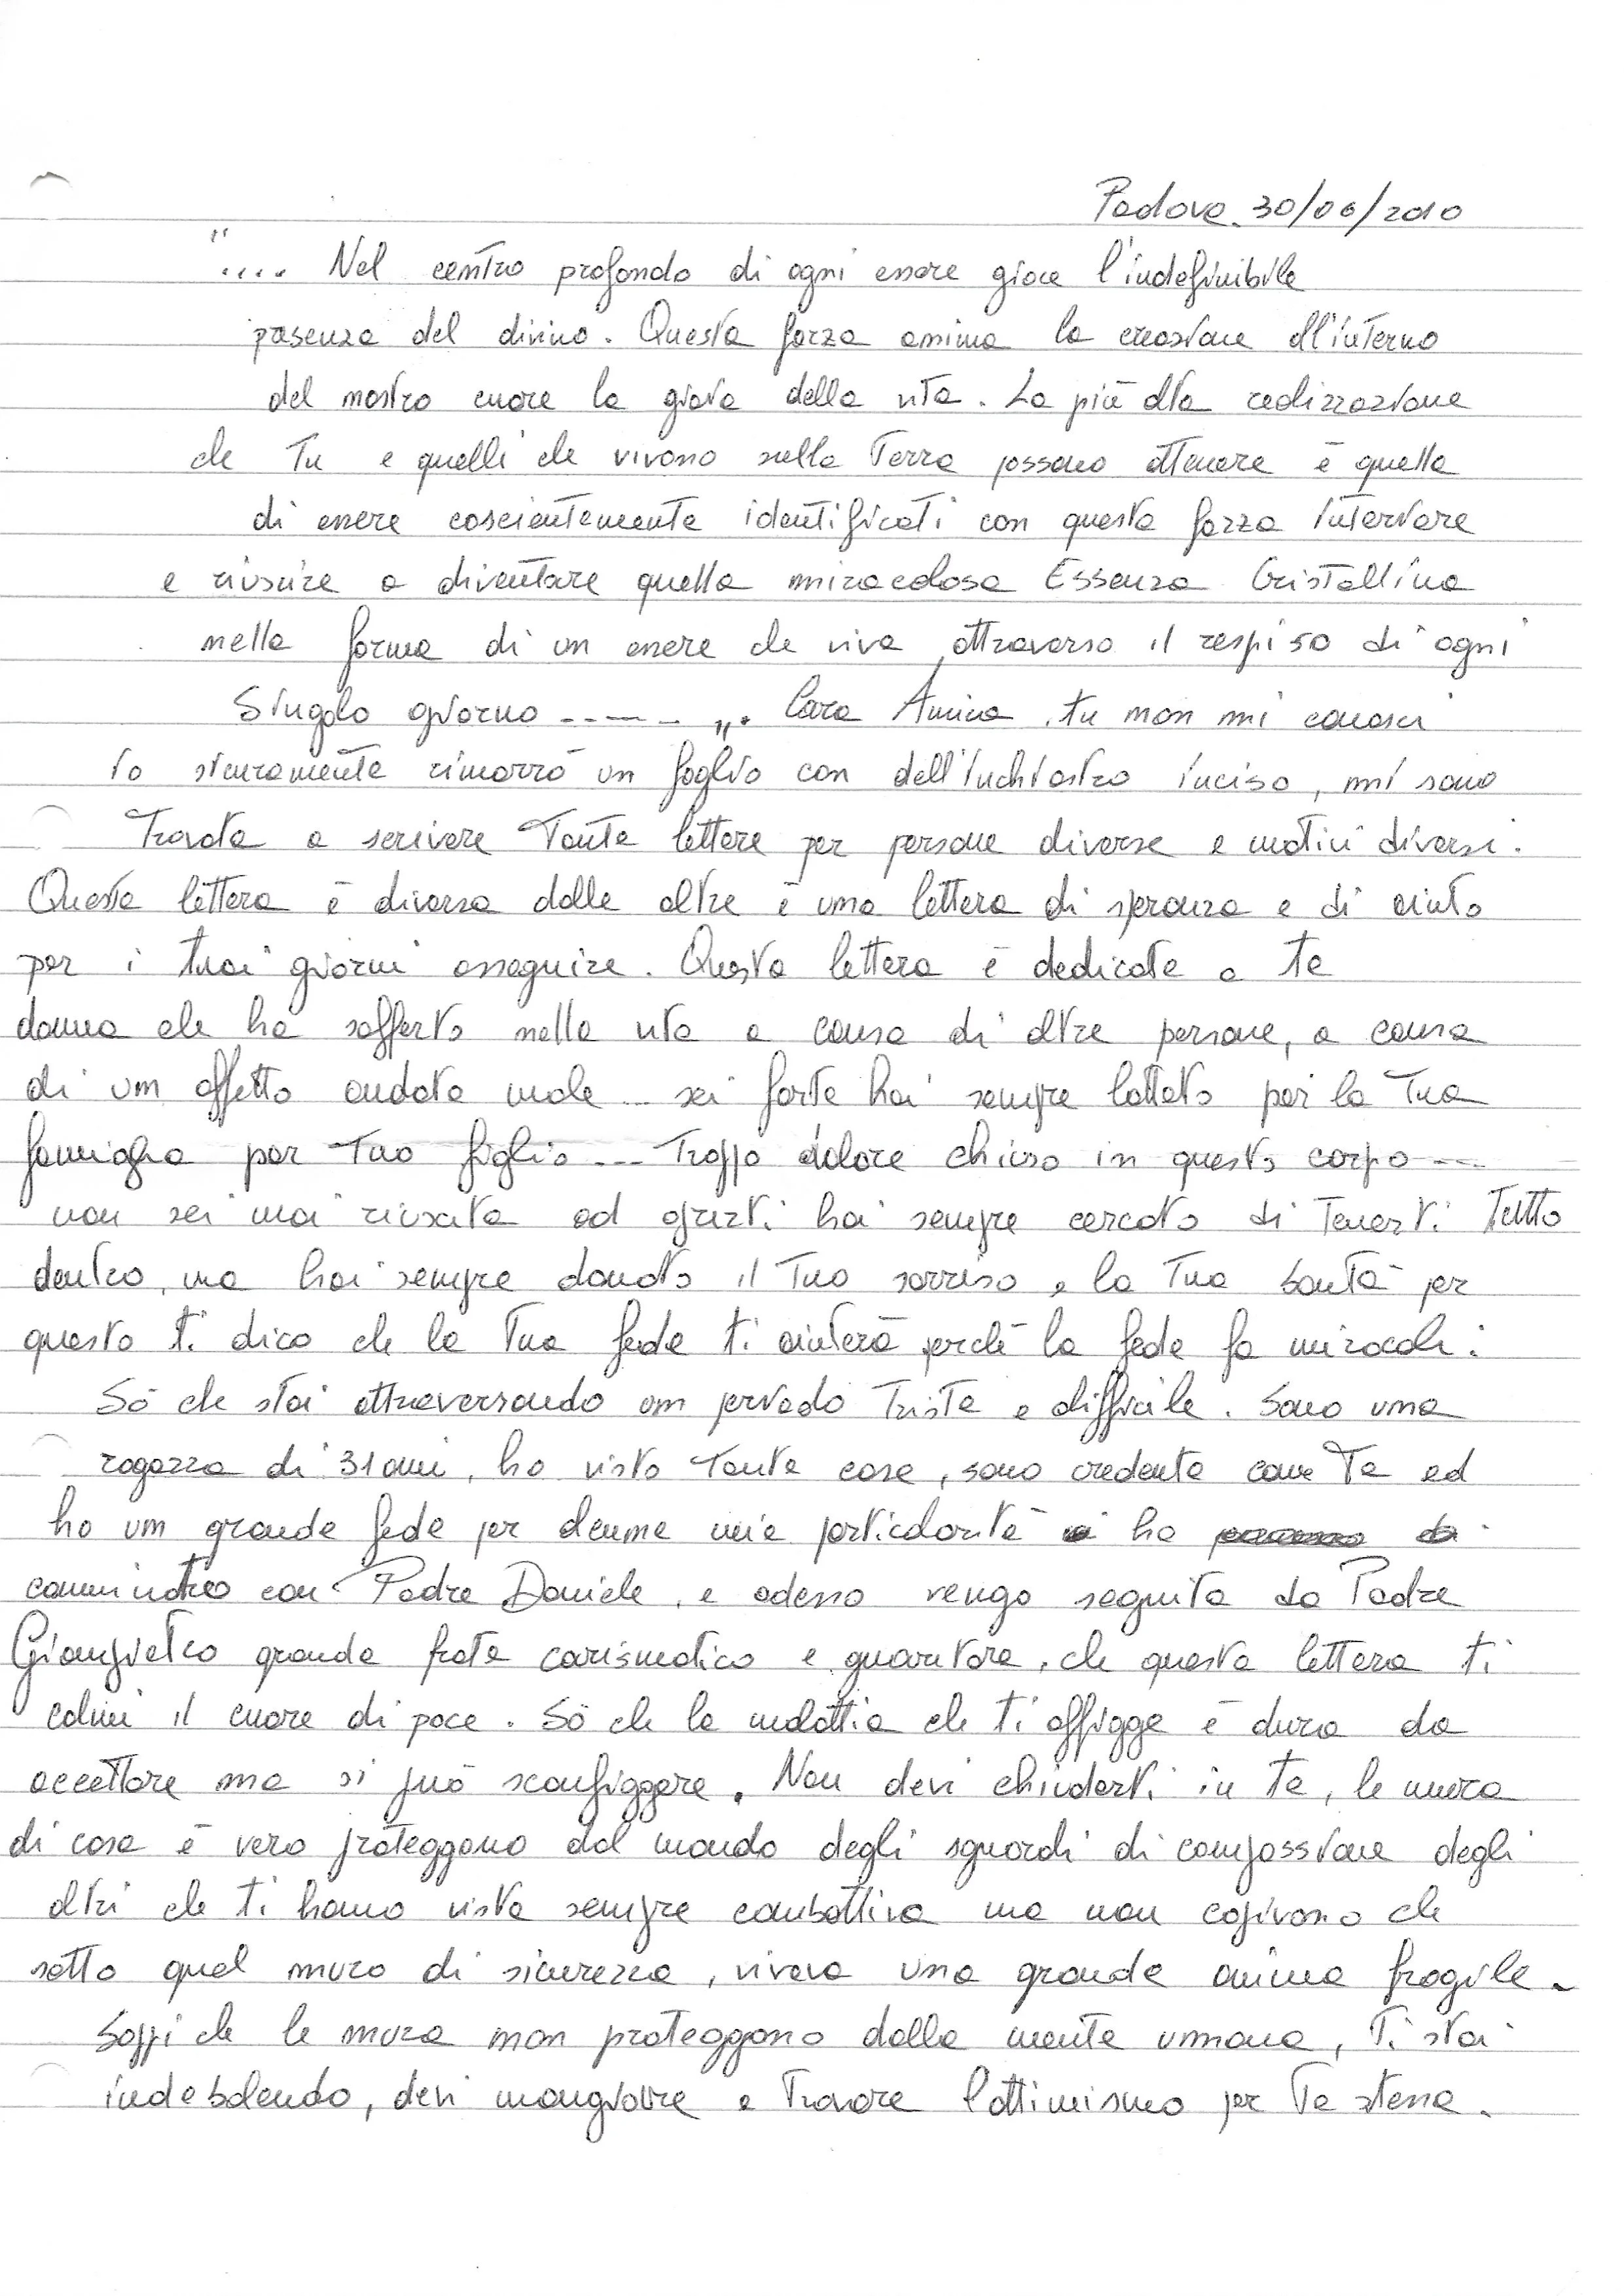 Padova 30/06/2010
".... Nel centro profondo di ogni essere giace l'indefinibile
presenza del divino. Questa forza anima la creazione all'interno
del nostro cuore la gioia della vita. La più alta realizzazione
che Tu e quelli che vivono sulla Terra possano ottenere è quella
di essere coscientemente identificati con questa forza interiore
e riuscire a diventare quella miracolosa Essenza Cristallina
nella forma di un essere che viva attraverso il respiro di ogni
Singolo giorno ----- ". Cara Amica, tu non mi conosci
io sicuramente rimarrò un foglio con dell'inchiostro inciso, mi sono
Trovata a scrivere Tante lettere per persone diverse e motivi diversi.
Questa lettera è diversa dalle altre è una lettera di speranza e di aiuto
per i tuoi giorni asseguire. Questa lettera è dedicata a te
donna che ha sofferto nella vita a causa di altre persone, a causa
di un affetto andato male... sei forte hai sempre lottato per la Tua
famiglia per Tuo figlio... Troppo dolore chiuso in questo corpo...
non sei mai riuscita ad aprirti hai sempre cercato di Tenerti Tutto
dentro, ma hai sempre donato il Tuo sorriso e la Tua bontà per
questo ti dico che la Tua fede ti aiuterà perchè la fede fa miracoli.
Sò che stai attraversando un periodo Triste e difficile. Sono una
ragazza di 31 anni, ho visto Tante cose, sono credente come Te ed
ho un grande fede per alcune mie particolarità ho
con Padre Daniele, e adesso vengo seguita da Padre
Gianpietro grande frate carismatico e guaritore, che questa lettera ti
colmi il cuore di pace. Sò che la malattia che ti affigge è dura da
accettare ma si può sconfiggere. Non devi chiuderti in te, le mura
di casa è vero proteggono dal mondo degli sguardi di compassione degli
altri che ti hanno vista sempre combattiva ma non capivano che
sotto quel muro di sicurezza, viveva una grande anima fragile.
Sappi che le mura non proteggono dalla mente umana, Ti stai
indebolendo, devi mangiare e Trovare l'ottimismo per Te stessa.